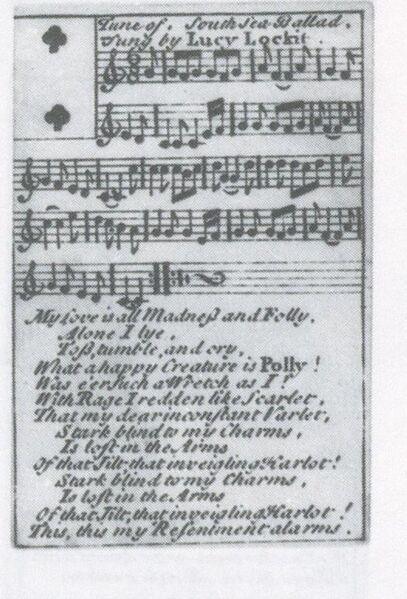 Tune of, South Sea Ballad.
Sung by Lucy Lockit.
My Love is all Madneſs and Folly,
Alone I lye,
Toſs, tumble, and cry,
What a happy Creature is Polly!
Was e'er such a Wretch as I!
With Rage I redden like Scarlet,
That my dear inconſtant Varlet,
Stark blind to my Charms,
Is loſt in the Arms
Of that Jilt, that inveigling Harlot!
Stark blind to my Charms,
Is loſt in the Arms
Of that Jilt, that inveigling Harlot!
This, this my Reſentment alarms.